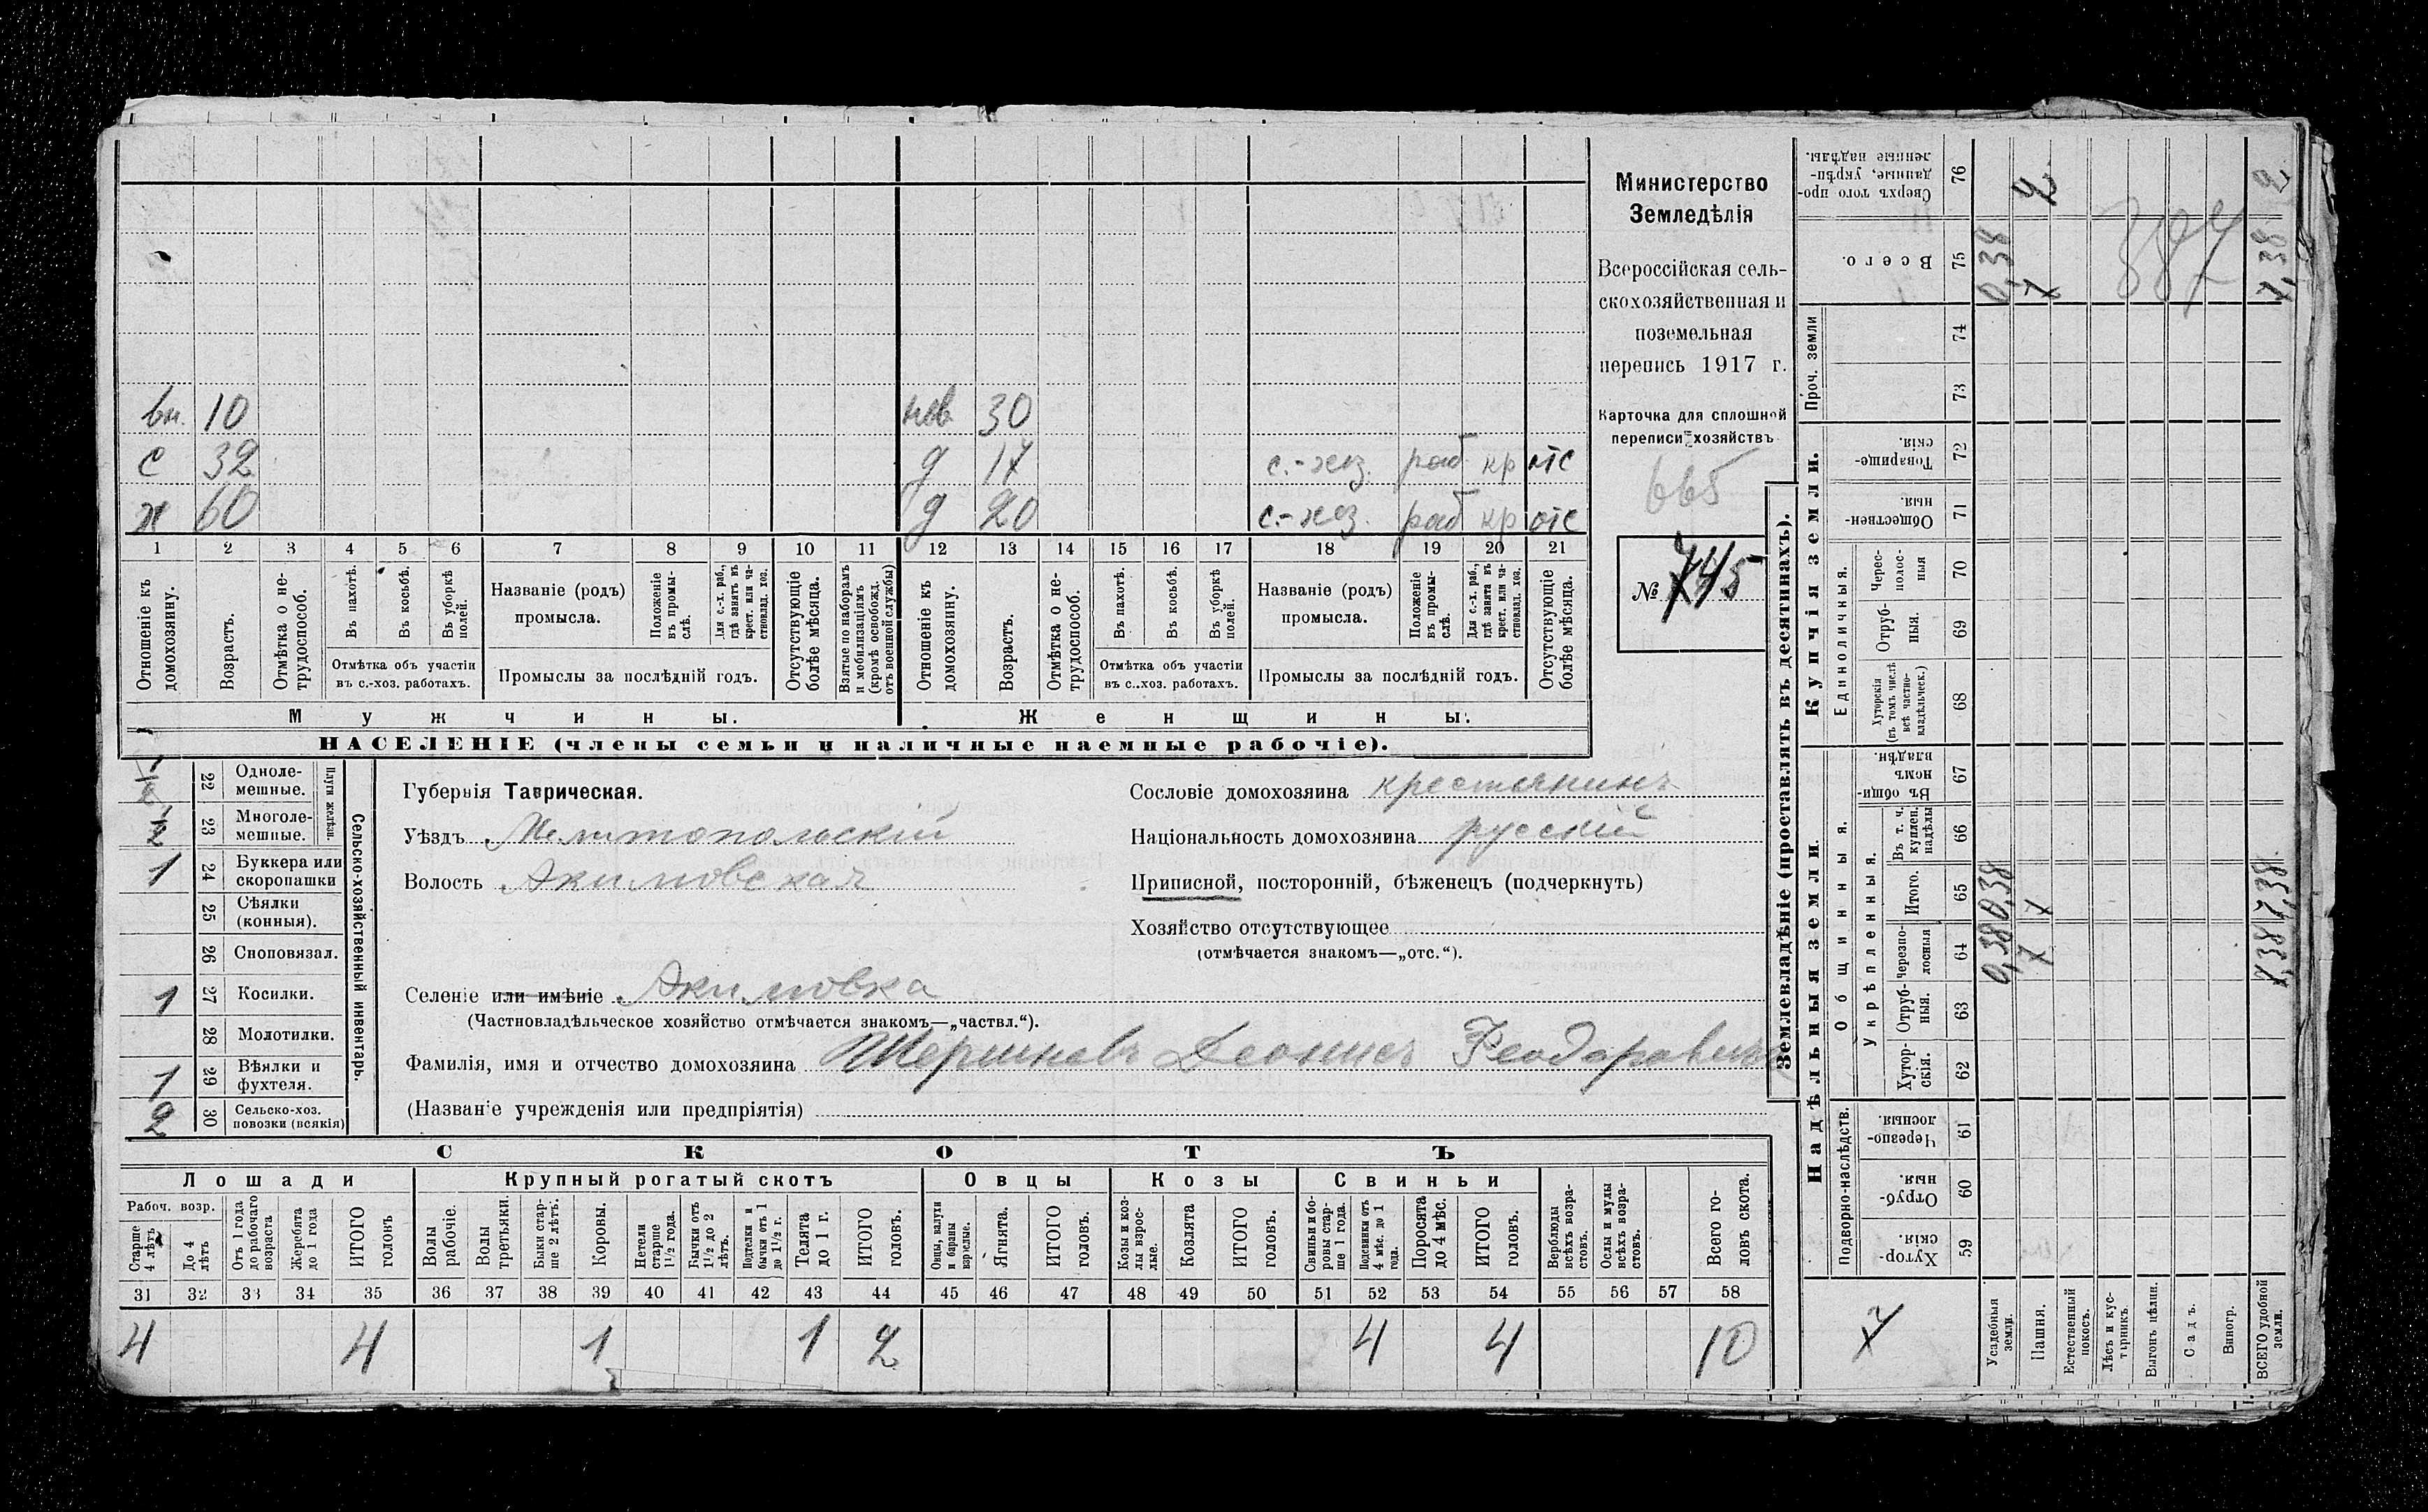 вн. 10 нев 30
с 32 д 17 с.-хоз. раб кр отс
х 60 д 20 с.-хоз. раб кр отс
1 2 3 4 5 6 7 8 9 10 11 12 13 14 15 16 17 18 19 20 21
Отношеніе къ домохозяину.
Возрастъ.
Отмѣтка о нетрудоспособ.
Въ пахотѣ.
Въ косьбѣ.
Въ уборкѣ полей.
Отмѣтка объ участіи въ с.-хоз. работахъ.
Названіе (родъ) промысла.
Положеніе въ промыслѣ.
Для с.-х. раб., гдѣ занятъ въ крест. или частновлад. хоз.
Промыслы за послѣдній годъ.
Отсутствующіе болѣе мѣсяца.
Взятые по наборамъ и мобилизаціямъ (кромѣ освобожд. отъ военной службы)
Отношеніе къ домохозяину.
Возрастъ.
Отмѣтка о нетрудоспособ.
Въ пахотѣ.
Въ косьбѣ.
Въ уборкѣ полей.
Отмѣтка объ участіи въ с..хоз. работахъ.
Названіе (родъ) промысла.
Положеніе въ промыслѣ.
Для с.-х. раб., гдѣ занята въ крест. или частновлад. хоз.
Промыслы за послѣдній годъ.
Отсутствующіе болѣе мѣсяца.
Мужчины. Женщины.
НАСЕЛЕНІЕ (члены семьи и наличные наемные рабочіе).
Министерство
Земледѣлія
Всероссійская сель-
скохозяйственная и
поземельная
перепись 1917 г.
Карточка для сплошной
переписи хозяйствъ
665
№ 745
Сельско-хозяйственный инвентарь.
Плуги желѣзн.
22 Одноле-
мешные.
23 Многоле-
мешные.
1 24 Буккера или
скоропашки
25 Сѣялки
(конныя).
26 Сноповязал.
1 27 Косилки.
28 Молотилки.
1 29 Вѣялки и
фухтеля.
2 30 Сельско-хоз.
повозки (всякія)
Губернія Таврическая.
Уѣздъ Мелитопольскій
Волость Акимовская
Селеніе или имѣніе Акимовка
(Частновладѣльческое хозяйство отмѣчается знакомъ—„частвл.“).
Фамилія, имя и отчество домохозяина Шершневъ Деонисъ Феодоровичъ
(Названіе учрежденія или предпріятія)
Сословіе домохозяина крестянинъ
Національность домохозяина русскій
Приписной, посторонній, бѣженецъ (подчеркнуть)
Хозяйство отсутствующее
(отмѣчается знакомъ—„отс.“).
СКОТЪ
Лошади Крупный рогатый скотъ Овцы Козы Свиньи
Рабоч. возр.
Старше 4 лѣтъ
До 4 лѣтъ
Отъ 1 года до рабочаго возраста
Жеребята до 1 года
ИТОГО головъ
Волы рабочіе.
Волы третьяки.
Быки старше 2 лѣтъ.
Коровы.
Нетели старше 1½ года.
Бычки отъ 1½ до 2 лѣтъ.
Подтелки и бычки отъ 1 до 1½ г.
Телята до 1 г.
ИТОГО головъ.
Овцы, валухи и бараны взрослые.
Ягнята.
ИТОГО головъ.
Козы и козлы взрослые.
Козлята
ИТОГО головъ.
Свиньи и боровы старше 1 года.
Подсвинки отъ 4 мѣс. до 1 года.
Поросята до 4 мѣс.
ИТОГО головъ.
Верблюды всѣхъ возрастовъ.
Ослы и мулы всѣхъ возрастовъ.
Всего головъ скота.
31 32 33 34 35 36 37 38 39 40 41 42 43 44 45 46 47 48 49 50 51 52 53 54 55 56 57 58
4 4 1 1 2 4 4 10
Землевладѣніе (проставлять въ десятинахъ).
Надѣльныя земли. Купчія земли. Проч. земли
Подворно-наслѣдств. Общинныя. Укрѣпленныя. Единоличныя.
59 Хутор-
скія.
60 Отруб-
ныя.
61 Черезпо-
лосныя.
62 Хутор-
скія.
63 Отруб-
ныя.
64 Черезпо-
лосныя
65 Итого.
66 Въ т. ч. куплен. надѣлы
67 Въ общи-
номъ
владѣн.
68 Хуторскія (въ томъ числѣ всѣ частно-владѣльческ.)
69 Отруб-
ныя.
70 Черес-
полос-
ныя
71 Обществен-
ныя.
72 Товарище-
скія.
73
74
75 Всего.
76 Сверхъ того про-
данные, укрѣп-
ленные надѣлы.
Усадебныя земли. 0,38 0,38 0,38
Пашня. 7 7 7
Естественный покосъ.
Лѣсъ и кустарникъ.
Выгонъ цѣлин.
Садъ.
Виногр.
ВСЕГО удобной земли. 7,38 7,38 7,38 2
387